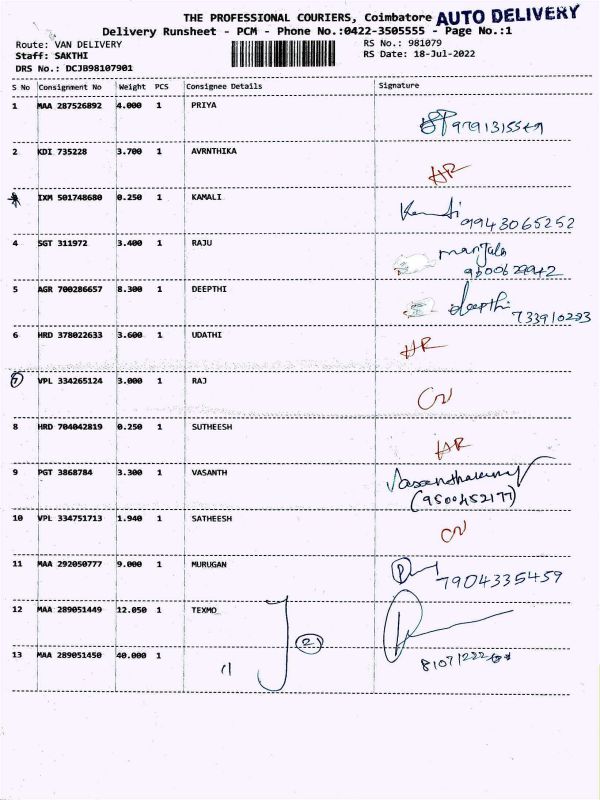 THE PROFESSIONAL COURIERS, Coimbatore AUTO DELIVERY
Delivery Runsheet - PCM - Phone No.:0422-3505555 - Page No.:1
Route: VAN DELIVERY RS No.: 981079
Staff: SAKTHI RS Date: 18-Jul-2022
DRS No.: DCJB98107901
S No Consignment No Weight PCS Consignee Details Signature
1 MAA 287526892 4.000 1 PRIYA
2 KDI 735228 3.700 1 AVRNTHIKA HR
IXM 501748680 0.250 1 KAMALI
9943065252
4 SGT 311972 3.400 1 RAJU manjula
5 AGR 700286657 8.300 1 DEEPTHI deepthi
6 HRD 378022633 3.600 1 UDATHI HR
7 VPL 334265124 3.000 1 RAJ CN
8 HRD 704042819 0.250 1 SUTHEESH HR
9 PGT 3868784 3.300 1 VASANTH
(9500452177)
10 VPL 334751713 1.940 1 SATHEESH CN
11 MAA 292050777 9.000 1 MURUGAN 7904335459
12 MAA 289051449 12.050 1 TEXMO
2
13 MAA 289051450 40.000 1